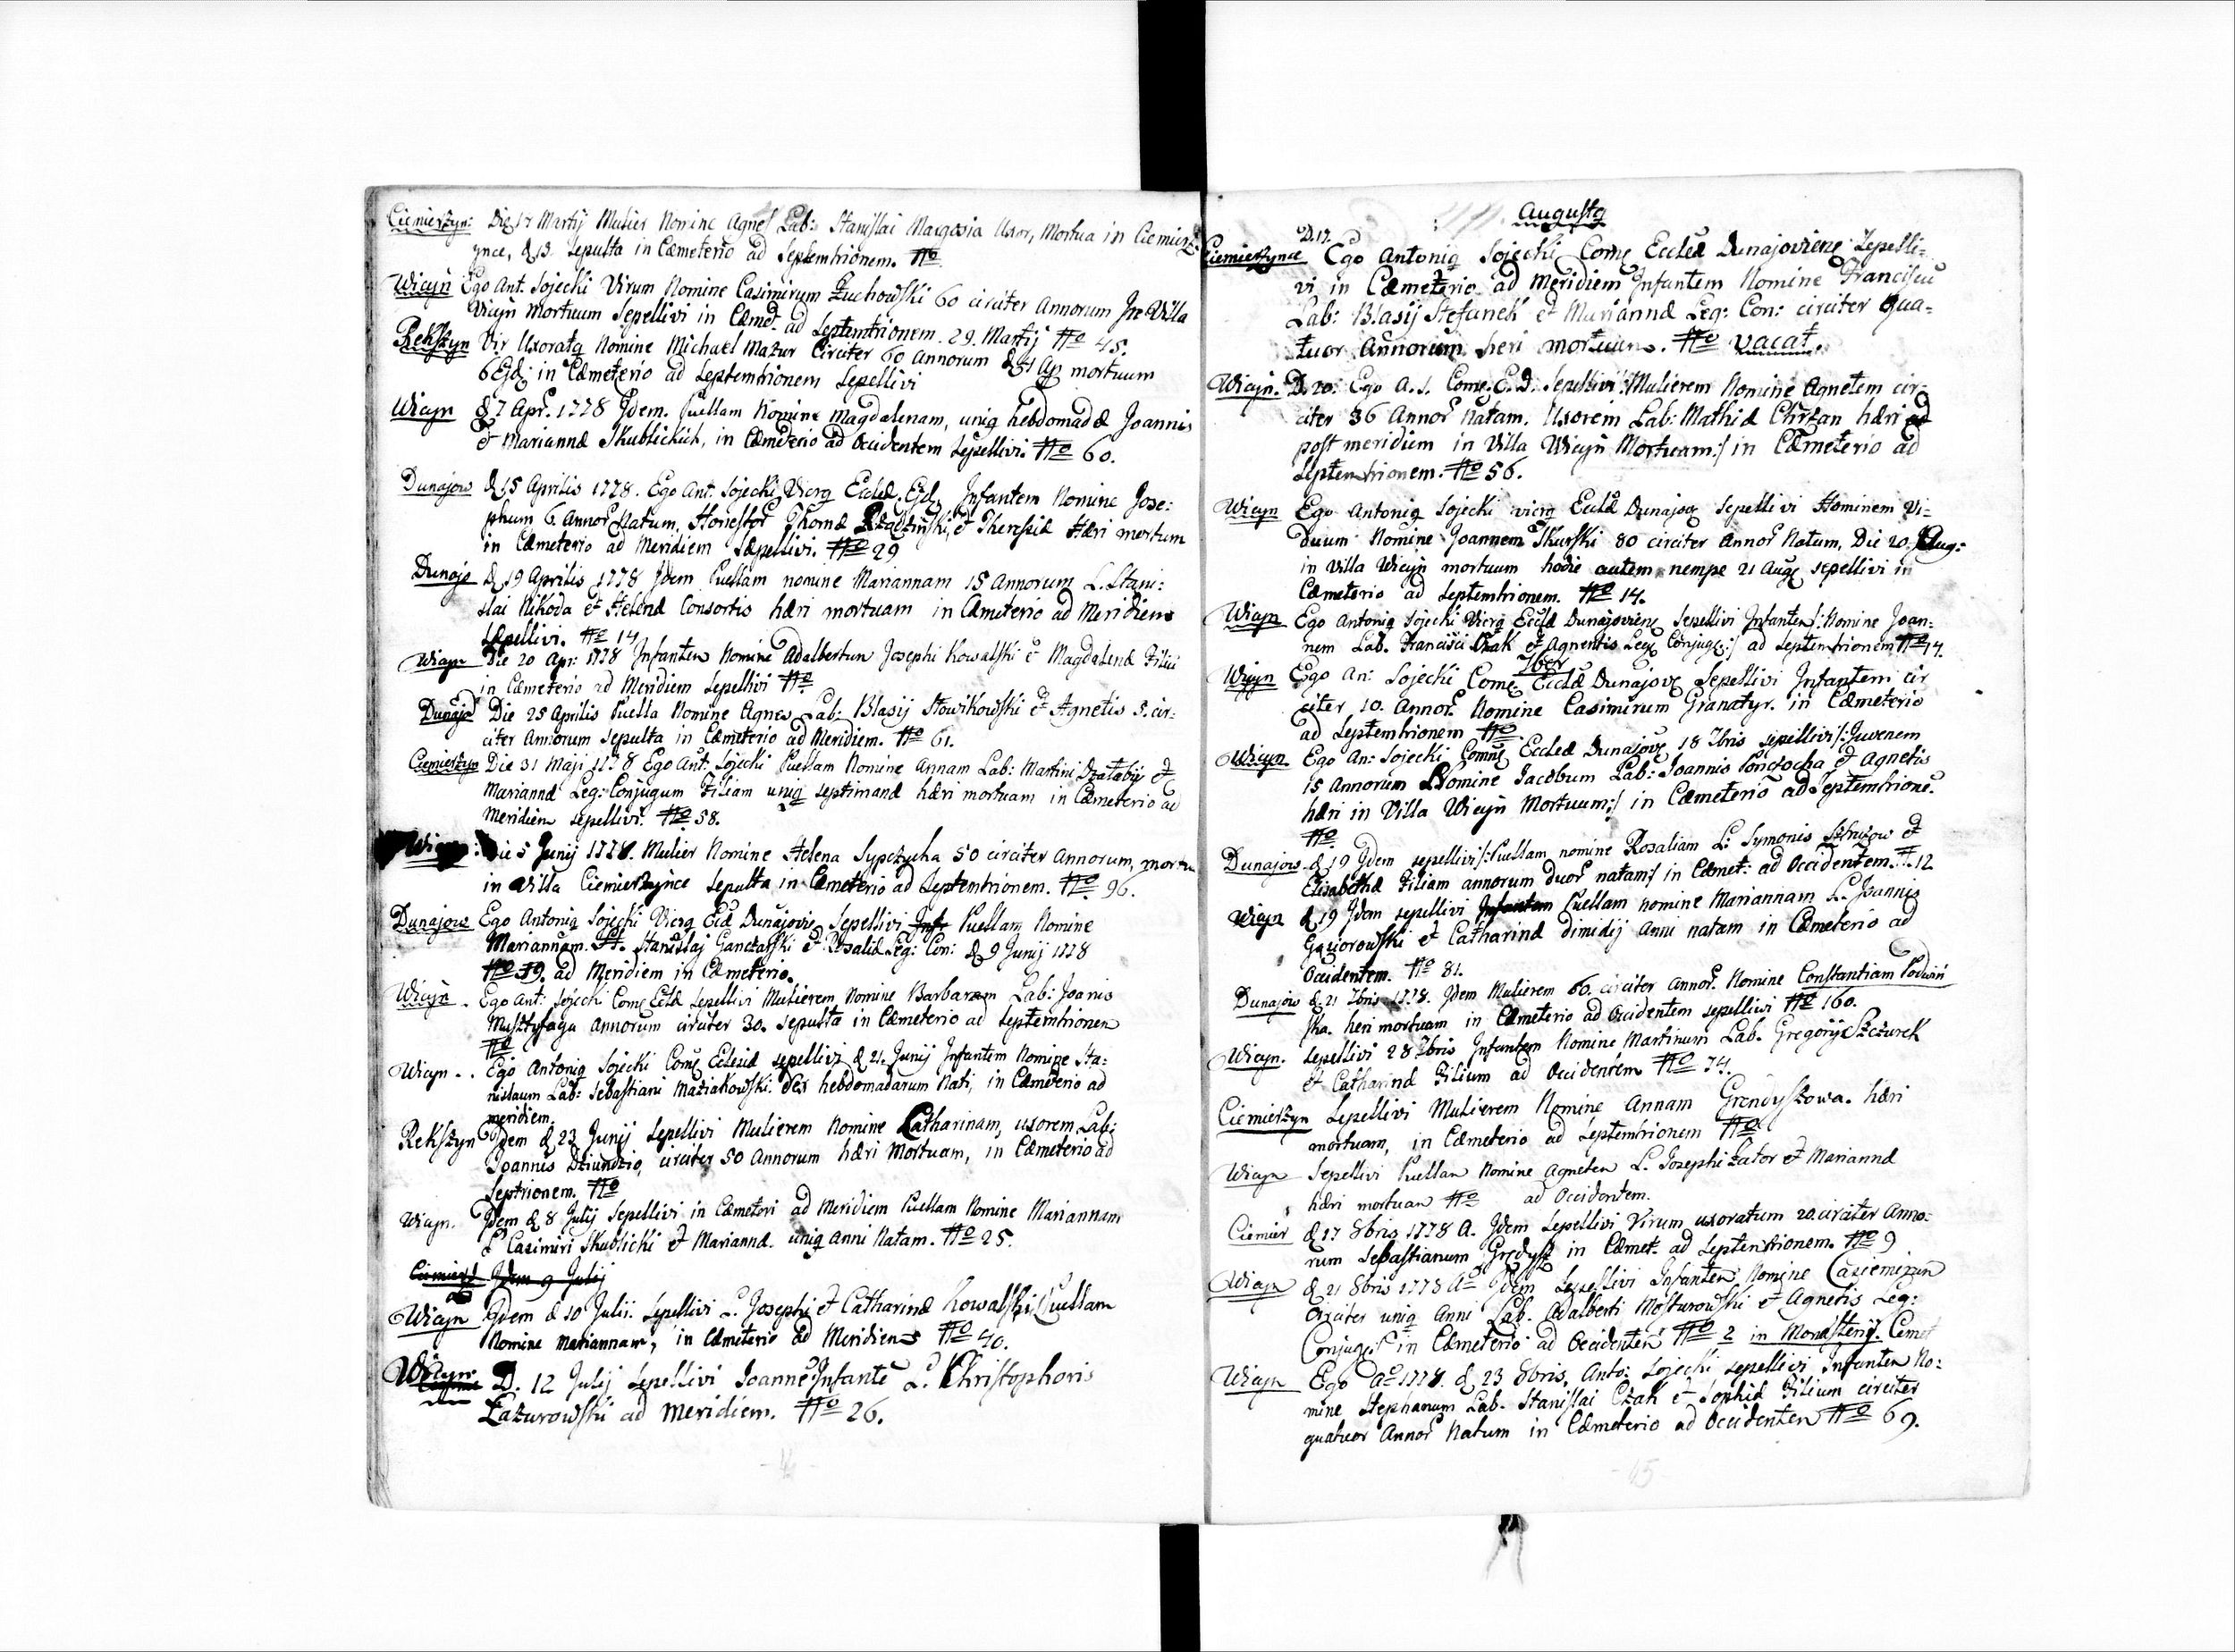 Ciemierzyn: Die 17 Martij Mulier Nomine Agnes Lab: Stanislai Margosia Uxor, Mortua in Ciemierz
ynce, d. 18 sepulta in Cæmeterio ad Septemtrionem. No
Wicyn Ego Ant. Sojecki Virum Nomine Casimirum Żuchowski 60 circiter Annorum In Villa
Vicyn Mortuum Sepellivi in Cæmet. ad Septemtrionem. 29. Martij No 45.
Rekszyn Vir Uxoratq Nomine Michael Mazur Circiter 60 Annorum mortuum
6 Ejd: in Cæmeterio ad Septemtrionem Sepellivi
Wicyn d 7 Apr. 1778 Idem. Puellam Nomine Magdalenam, uniq hebdomadæ Joannis
et Mariannæ Skublickich, in Cæmeterio ad Occidentem Sepellivi. No 60.
Dunajow d 15 Aprilis 1778. Ego Ant. Sojecki Vicrq Eccl. Ejd, Infantem Nomine Jose:
phum 6. Annor Natum, Honestor Thomæ et Theresiæ Hæri mortum
in Cæmeterio ad Meridiem Sæpellivi. No 29
Dunajo d 19 Aprilis 1778 Idem Puellam nomine Mariannam 15 Annorum L. Stani:
slai Nikoda et Helenæ Consortis hæri mortuam in Cæmeterio ad Meridiem
Sæpellivi. No 14
Wicyn Die 20 Apr: 1778 Infantem Nomine Adalbertum Josephi Kowalski et Magdalenæ Filii
in Cæmeterio ad Meridiem Sepellivi No
Dunajo Die 25 Aprilis Puella Nomine Agnes Lab: Blasij Słowikowski et Agnetis 5. cir:
citer Annorum Sepulta in Cæmeterio ad Meridiem. No 61.
Ciemierzyn Die 31 Maji 1778 Ego Ant: Sojecki Puellam Nomine Annam Lab: Martini et
Mariannæ Leg: Conjugum Filiam uniq septimanæ hæri mortuam in Cæmeterio ad
Meridiem sepellivi. No 58.
Wicyn: Die 5 Junij 1778. Mulier Nomine Helena Sypczycha 50 circiter Annorum, mortu
in Villa Ciemierzynce Sepulta in Cæmeterio ad Septemtrionem. No 96.
Dunajow Ego Antoniq Sojecki Vicrq Ecl Dunajovie, Sepellivi Inf. Puellam Nomine
Mariannam. St. Stanislaj Ganczarski et Rosaliæ Leg: Con: d 9 Junij 1778
No 39. ad Meridiem in Cæmeterio.
Wicyn. Ego Ant: Sojecki Com Ecclæ Sepellivi Mulierem Nomine Barbaram Lab: Joanis
Musztyfaga Annorum circiter 30. sepulta in Cæmeterio ad Septemtrionem
No
Wicyn.. Ego Antoniq Sojecki Com Eclesiæ sepellivi d 21. Junij Infantem Nomine Sta:
nislaum Lab: Sebastiani Maziakowski. Sex hebdomadarum Nati, in Cæmeterio ad
meridiem.
Rekszyn Idem d 23 Junij Sepellivi Mulierem Nomine Catharinam, uxorem Lab:
Joannis Dziundzio, circiter 50 Annorum hæri Mortuam, in Cæmeterio ad
Septrionem. No
Wicyn. Idem d 8 Julij Sepellivi in Cæmeteri ad Meridiem Puellam Nomine Mariannam
L Casimiri Skublicki et Mariannæ. uniq anni Natam. No 25.
Ciemierz Idem 9 Julij
Wicyn Idem d 10 Julii. Sepellivi L. Josephi et Catharinæ Kowalski Puellam
Nomine Mariannam, in Cæmeterio ad Meridiem No 40.
Wicyn D. 12 Julij Sepellivi Joanne Infante L. Christophoris
Łazurowski ad Meridiem. No 26.
Augustq
D. 17.
Ciemierzynce Ego Antoniq Sojecki Come Eccleæ Dunajoviene Sepelli=
vi in Cæmeterio ad Meridiem Infantem Nomine Franciscu
Lab: Blasij Stefanek et Mariannæ Leg: Con: circiter Qua=
tuor Annorum heri mortuum. No vacat.
Wicyn. D. 20. Ego A. S. Come. E. D. Sepellivi Mulierem Nomine Agnetem cir=
citer 36 Annor Natam. Uxorem Lab: Mathiæ Chrzan hæri
post meridiem in Villa Wicyn Mortuam:/ in Cæmeterio ad
Septemtrionem. No 56.
Wicyn Ego Antoniq Sojecki vicrq Ecclæ Dunajov sepellivi Hominem Vi=
duum Nomine Joannem Skurski 80 circiter Annor Natum, Die 20. Aug:
in Villa Wicyn mortuum hodie autem nempe 21 Aug sepellivi in
Cæmeterio ad Septemtrionem. No 14.
Wicyn Ego Antoniq Sojecki Vicrq Ecclæ Dunajoviene Sepellivi Infantem/: Nomine Joan=
nem Lab. Francisci Czak et Agnentis Leg Conjug:/ ad Septemtrionem No 14.
7ber
Wicyn Ego An: Sojecki Come Ecclæ Dunajov Sepellivi Infantem cir
citer 10. Annor. Nomine Casimirum Granatyr. in Cæmeterio
ad Septemtrionem No
Wicyn. Ego An: Sojecki Come Eccleæ Dunajov 18 7bris sepellivi/: Juvenem
15 Annorum Nomine Jacobum Lab: Joannis Ponczocha et Agnetis
hæri in Villa Wicyn Mortuum:/ in Cæmeterio ad Septemtrione.
No
Dunajow. d 19 Idem sepellivi/: Puellam nomine Rosaliam L: Symonis et
Elisabethæ Filiam annorum duor natam:/ in Cæmet: ad Occidentem. No 12
Wicyn d 19 Idem sepellivi Infantem Puellam nomine Mariannam L. Joannis
Gąsiorowski et Catharinæ dimidij anni natam in Cæmeterio ad
Occidentem. No 81.
Dunajow d. 21 7bris 1778. Idem Mulierem 60. circiter annor. Nomine Constantiam Podwin
ska. heri mortuam in Cæmeterio ad Occidentem sepellivi No 160.
Wicyn. Sepellivi 28 7bris Infantem Nomine Martinum Lab. Gregorij Szczurek
et Catharinæ Filium ad Occidentem No 74.
Ciemierzyn Sepellivi Mulierem Nomine Annam Grendyszowa. hæri
mortuam, in Cæmeterio ad Septemtrionem No
Wicyn Sepellivi Puellam Nomine Agneten L. Josephi Zator et Mariannæ
hæri mortuam No ad Occidentem.
Ciemier d 17 8bris 1778 A. Idem Sepellivi Virum uxoratum 20 circiter Anno:
rum Sebastianum Grędysz in Cæmet. ad Septentrionem. No 9
Wicyn d 21 8bris 1778 Ao Idem Sepellivi Infantem Nomine Casiemirum
Circiter uniq Anni Lab. Adalberti Mosturowski et Agnetis Leg:
Conjug: in Cæmeterio ad Occidentem No 2 in Monasterij. Cemet
Wicyn Ego Ao 1778. d 23 8bris, Anto: Sojecki sepellivi Infantem No:
mine Stephanum Lab. Stanislai Czak et Sophiæ Filium circiter
quatuor Annor Natum in Cæmeterio ad Occidentem No 69.